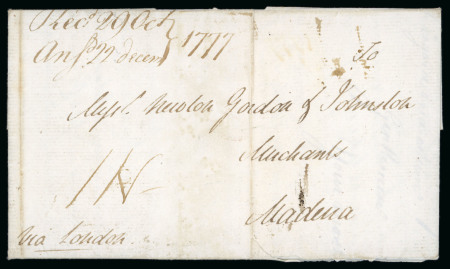 Rec.d 29 Oct
Ans.d 22 decem.r } 1777
To
Mess.rs Newton Gordon & Johnston
Merchants
Madeira
via London